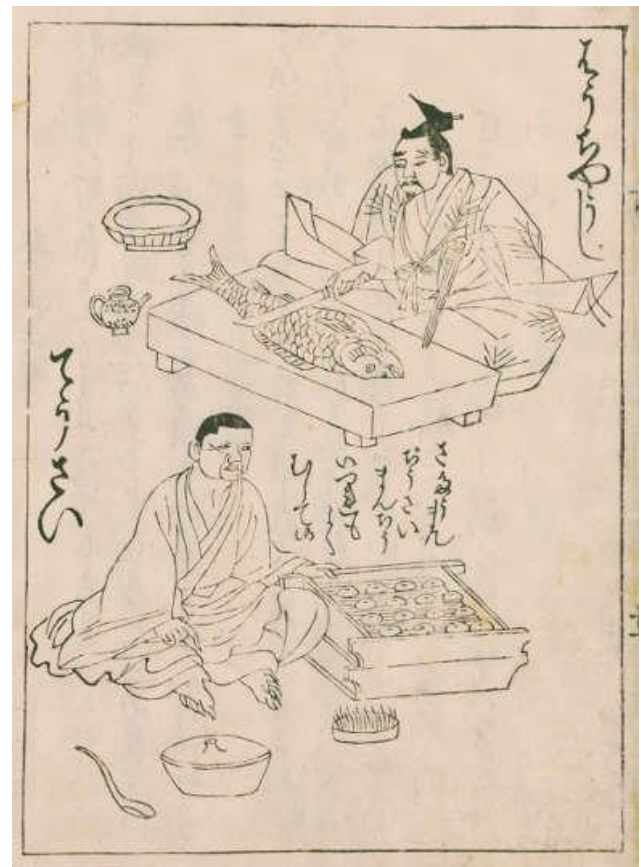 はうちやうし
てうさい
さたうまん
ちうさい
まんちう
いつれも
よく
むして候